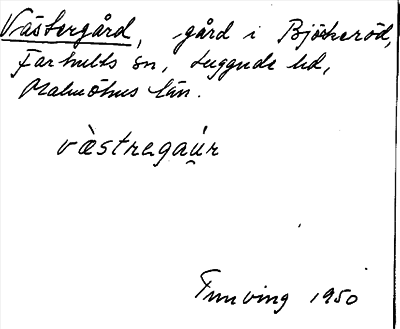 Västergård, gård i Björkeröd,
Farhults sn, Luggude hd,
Malmöhus län.
vàstregau̯r
1950